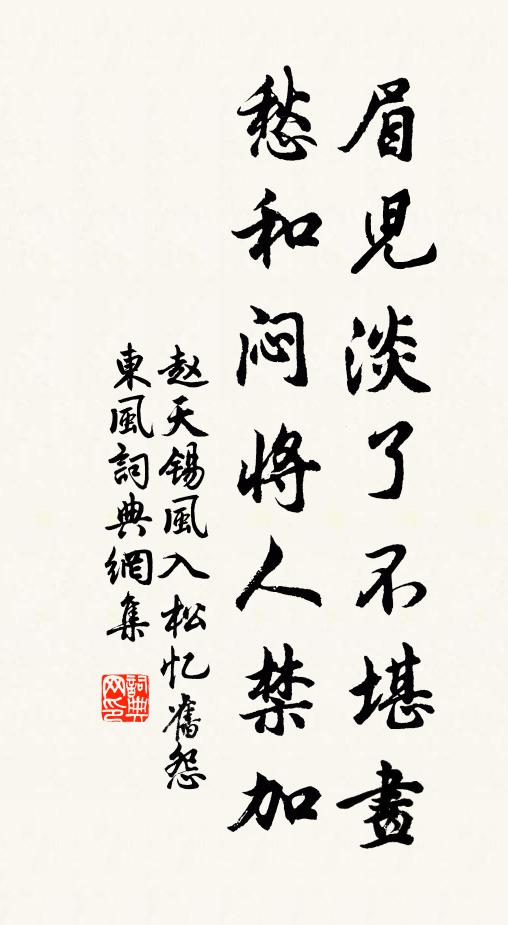 眉兒淡了不堪畫
愁和闷將人禁加
赵天锡風入松忆舊怨
東風詞典網集
詞典
网印